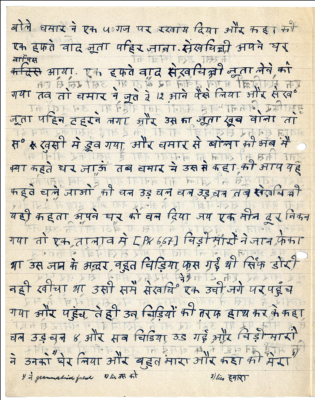 बोले चमार ने एक ५ गज पर रखाय दिया और कहा की
एक हफ्ते बाद जूता पहिर जाना. सेखचिल्ली अपने घर
वापिस
आया. एक हफ्ते बाद सेखचिल्ली जूता लेने को
गया तब तो चमार ने जूते के 12 आने पैसे लिया और सेख०
जूता पहिन टहरने लगा और उस का जूता खूब बोला तो
स० खुसी में डूब गया और चमार से बोला की अब मैं
क्या कहते घर जाऊं तब चमार ने उस से कहा की आप यह
कहते चले जाओ की चल उड़ चल चल उड़ चल तब सेखचिल्ली
यही कहता अपने घर को चल दिया जब एक मील दूर निकल
गया तो एक तालाव में [PK 667] चिड़ीमारों ने जाल फेंका
था उस जाल के अन्दर बहुत चिड़िया फस गई थी सिर्फ डोरी
नहीं खीचा था उसी समै सेखचि० एक उची जगे पर पहुंच
गया और पहुंच ते ही उन चिड़ियों की तरफ हाथ कर के कहा
चल उड़ चल ४ और सब चिड़िया उड़ गई और चिड़ीमारों
ने उनको घेर लिया और बहुत मारा और कहा की मेरा
हमारा